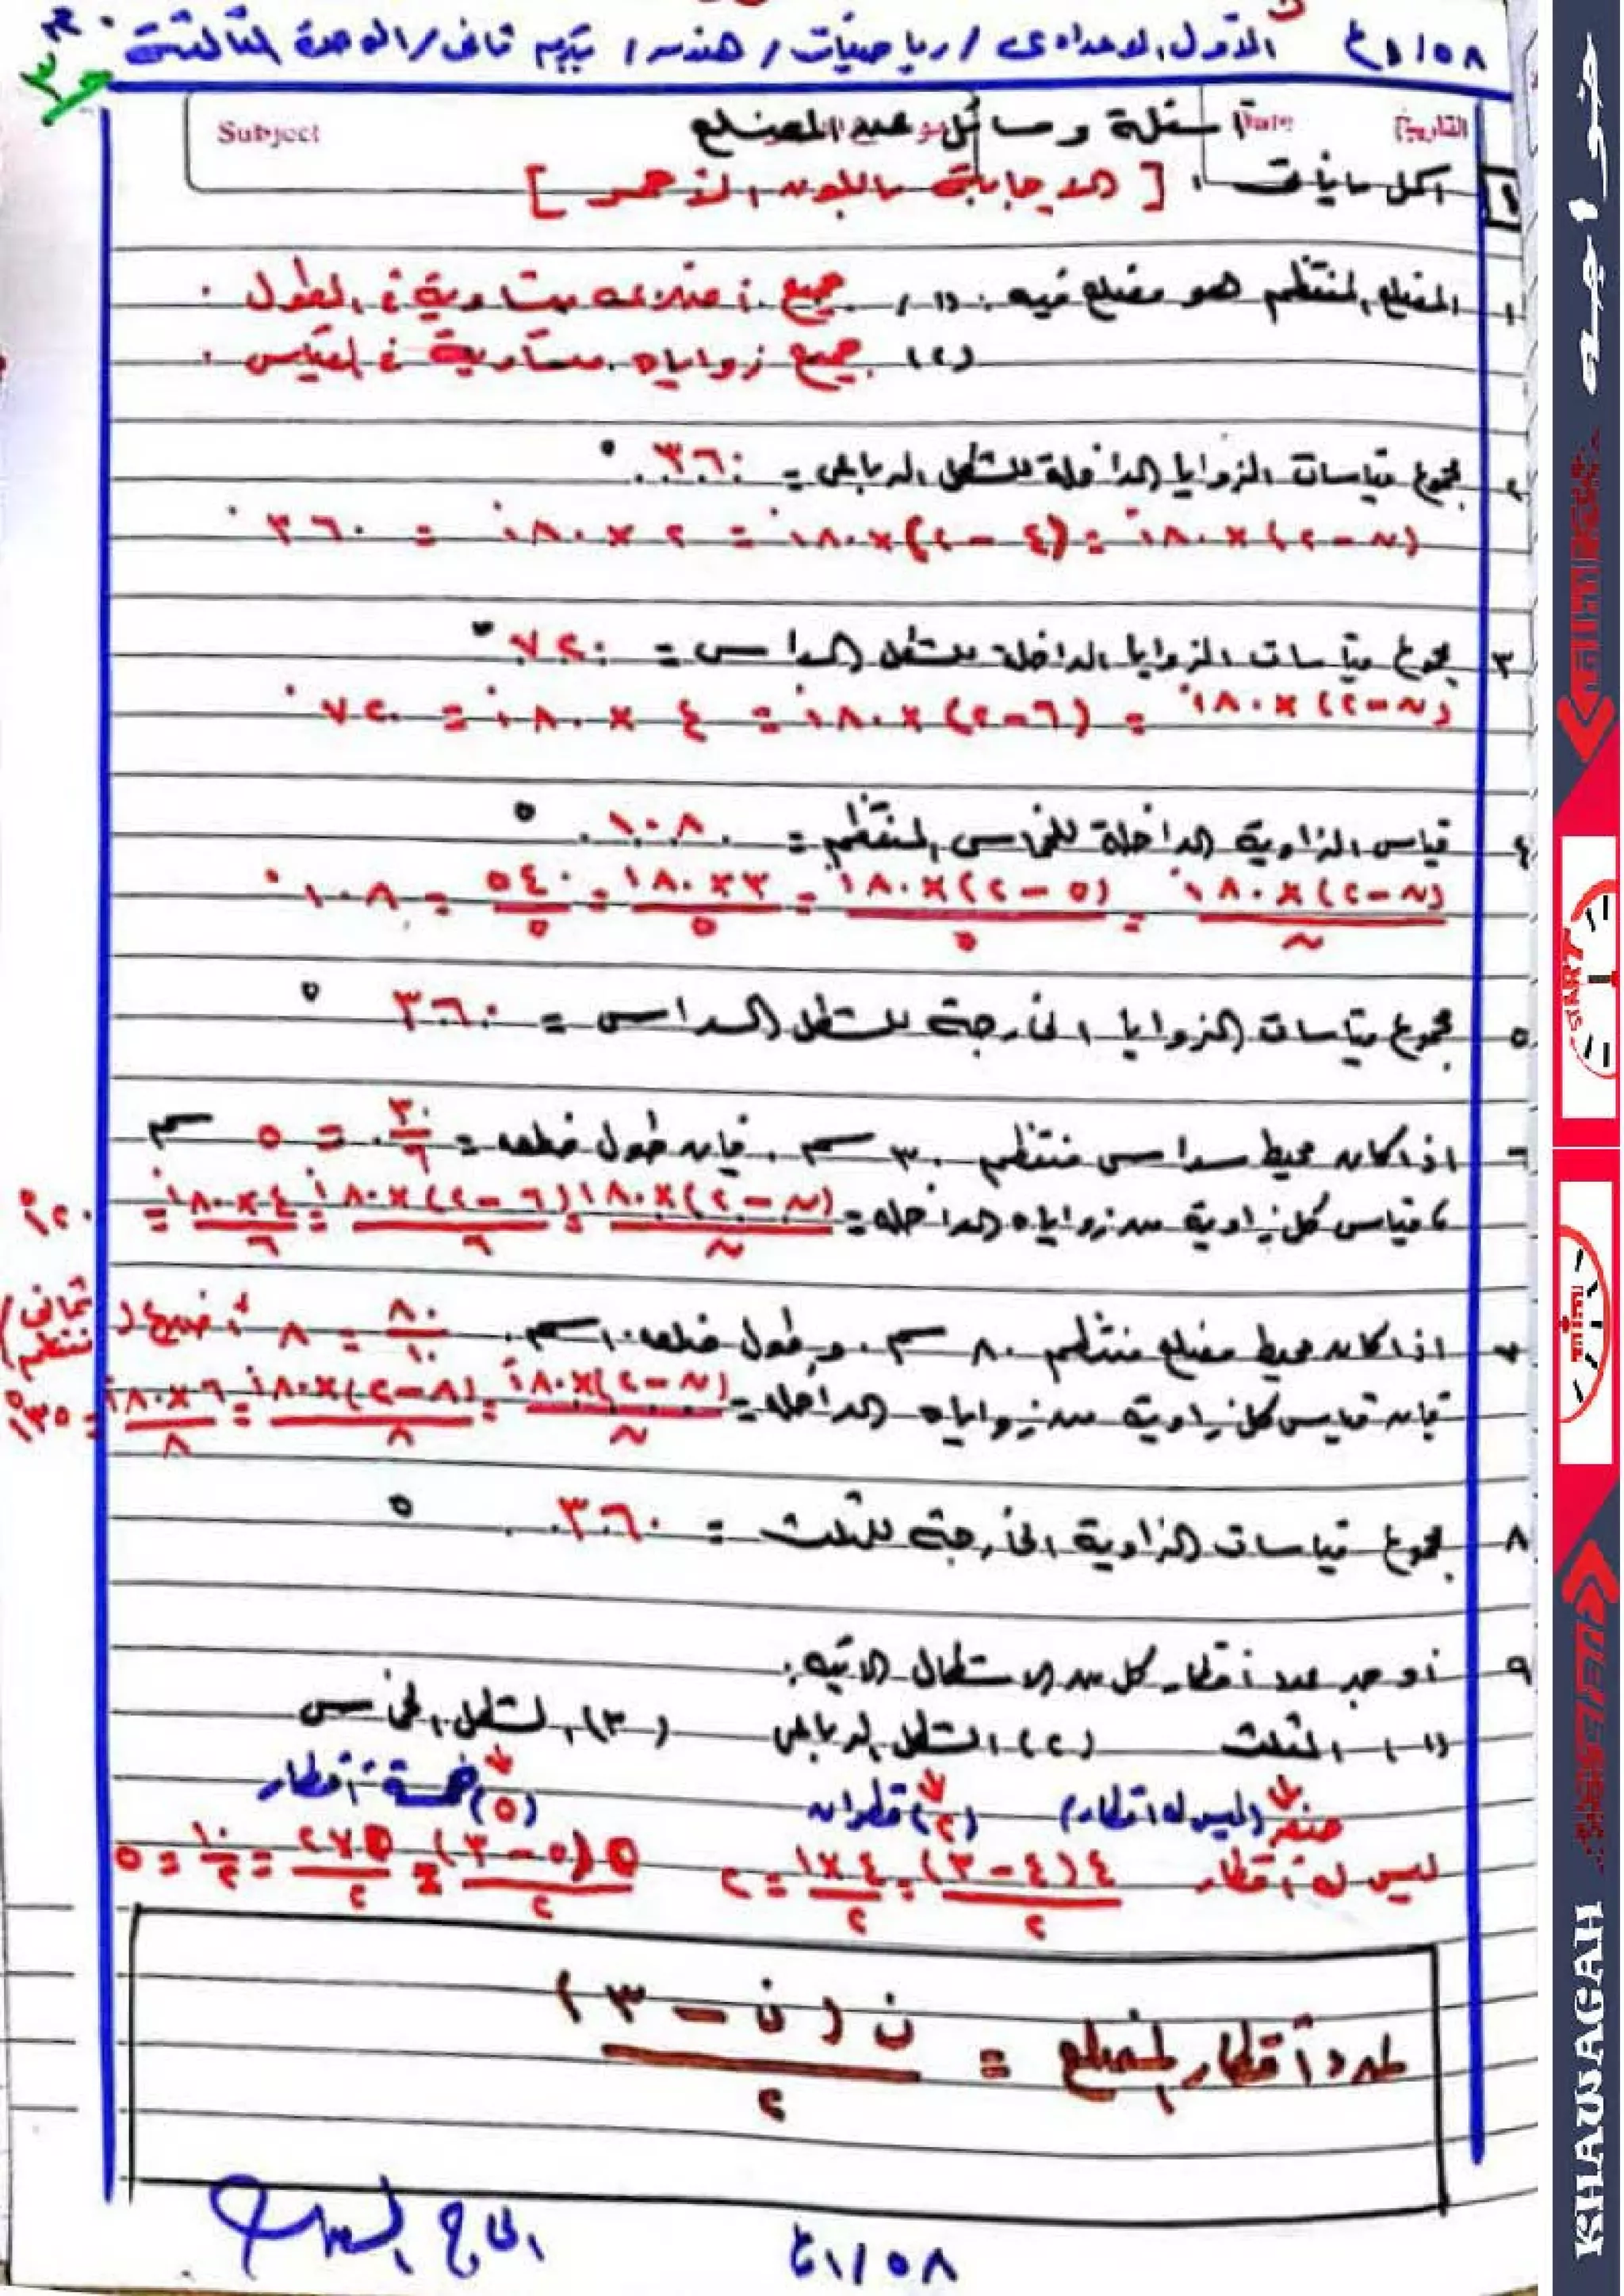 ٥٨ / ٤١ الأول الإعدادى / رياضيات / هندسة / تيرم ثانى / الوحدة الثالثة
Subject
Date
التاريخ
أسئلة ومسائل عن المضلع
١ اكمل ما يأتى : [ الإجابة باللون الأحمر ]
١ المضلع المنتظم هو مضلع فيه : (١) جميع أضلاعه متساوية فى الطول .
(٢) جميع زواياه متساوية فى القياس .
٢ مجموع قياسات الزوايا الداخلة للشكل الرباعى = ٣٦٠ °
(ن - ٢) × ١٨٠° = (٤ - ٢) × ١٨٠° = ٢ × ١٨٠° = ٣٦٠°
٣ مجموع قياسات الزوايا الداخلة للشكل السداسى = ٧٢٠ °
(ن - ٢) × ١٨٠° = (٦ - ٢) × ١٨٠° = ٤ × ١٨٠° = ٧٢٠°
٤ قياس الزاوية الداخلة للخماسى المنتظم = ١٠٨ °
(ن - ٢) × ١٨٠° / ن = (٥ - ٢) × ١٨٠° / ٥ = ٣ × ١٨٠ / ٥ = ٥٤٠ / ٥ = ١٠٨°
٥ مجموع قياسات الزوايا الخارجة للشكل السداسى = ٣٦٠ °
٦ اذا كان محيط سداسى منتظم ٣٠ سم . فإن طول ضلعه = ٣٠ / ٦ = ٥ سم
، قياس كل زاوية من زواياه الداخلة = (ن - ٢) × ١٨٠° / ن = (٦ - ٢) × ١٨٠° / ٦ = ٤ × ١٨٠° / ٦ = ١٢٠°
٧ اذا كان محيط مضلع منتظم ٨٠ سم . وطول ضلعه ١٠ سم . ٨٠ / ١٠ = ٨ أضلاع ( ثمانى منتظم )
فإن قياس كل زاوية من زواياه الداخلة = (ن - ٢) × ١٨٠° / ن = (٨ - ٢) × ١٨٠° / ٨ = ٦ × ١٨٠° / ٨ = ١٣٥°
٨ مجموع قياسات الزاوية الخارجة للمثلث = ٣٦٠ °
٩ أوجد عدد أقطار كل من الاشكال الاتية :
(١) المثلث (٢) الشكل الرباعى (٣) الشكل الخماسى
صفر (ليس له اقطار) (٢) قطران (٥) خمسة أقطار
ليس له أقطار ٤ (٤ - ٣) / ٢ = ٤ × ١ / ٢ = ٢ ٥ (٥ - ٣) / ٢ = ٥ × ٢ / ٢ = ١٠ / ٢ = ٥
عدد أقطار المضلع = ن ( ن - ٣ ) / ٢
٥٨ / ٤١
خواجه
START
time
KHAWAGAH